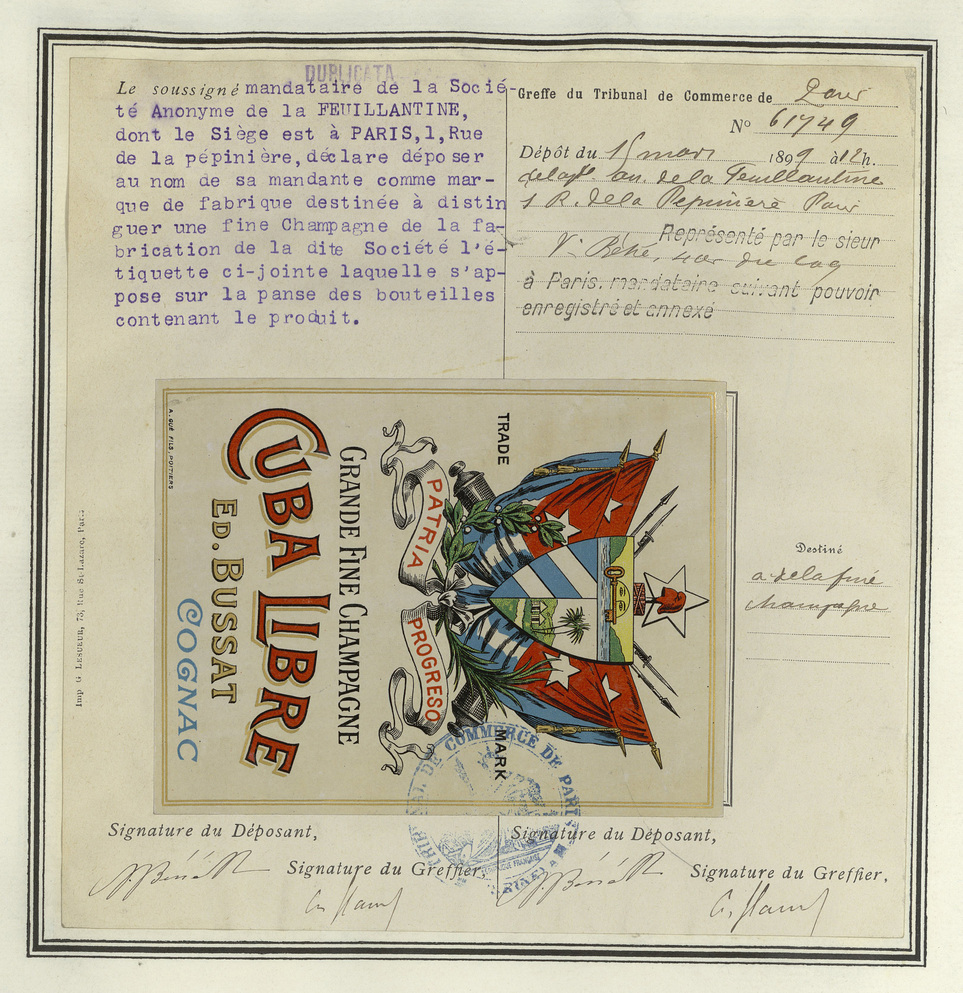 DUPLICATA
Le soussigné mandataire de la Socié-
té Anonyme de la FEUILLANTINE,
dont le Siège est à PARIS,1,Rue
de la pépinière,déclare déposer
au nom de sa mandante comme mar-
que de fabrique destinée à distin
guer une fine Champagne de la fa-
brication de la dite Société l'é-
tiquette ci-jointe laquelle s'ap-
pose sur la panse des bouteilles
contenant le produit.
Greffe du Tribunal de Commerce de Paris
No 61749
Dépôt du 15 mars 1899 à 12 h.
an. de la Feuillantine
1 R. de la Pepiniere Paris
Représenté par le sieur
à Paris, mandataire suivant pouvoir
enregistré et annexé
TRADE
MARK
PATRIA
PROGRESO
GRANDE FINE CHAMPAGNE
CUBA LIBRE
ED. BUSSAT
COGNAC
A. GUÉ FILS, POITIERS
Destiné
a de la fine
champagne
Imp G. LESUEUR, 73, Rue St-Lazare, Paris
TRIBUNAL DE COMMERCE DE PARIS
Signature du Déposant,
Signature du Greffier,
Signature du Déposant,
Signature du Greffier,